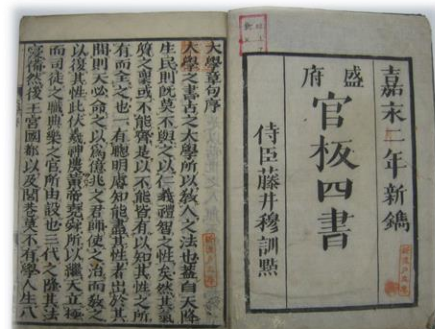 嘉永二年新鐫
盛府
官板四書
侍臣藤井穆訓點
大學章句序
大學之書古之大學所以教人之法也蓋自天降
生民則既莫不與之以仁義禮智之性矣然其氣
質之稟或不能齊是以不能皆有以知其性之所
有而全之也一有聰明睿知能盡其性者出於其
間則天必命之以爲億兆之君師使之治而教之
以復其性此伏羲神農黃帝堯舜所以繼天立極
而司徒之職典樂之官所由設也三代之隆其法
寖備然後王宮國都以及閭巷莫不有學人生八